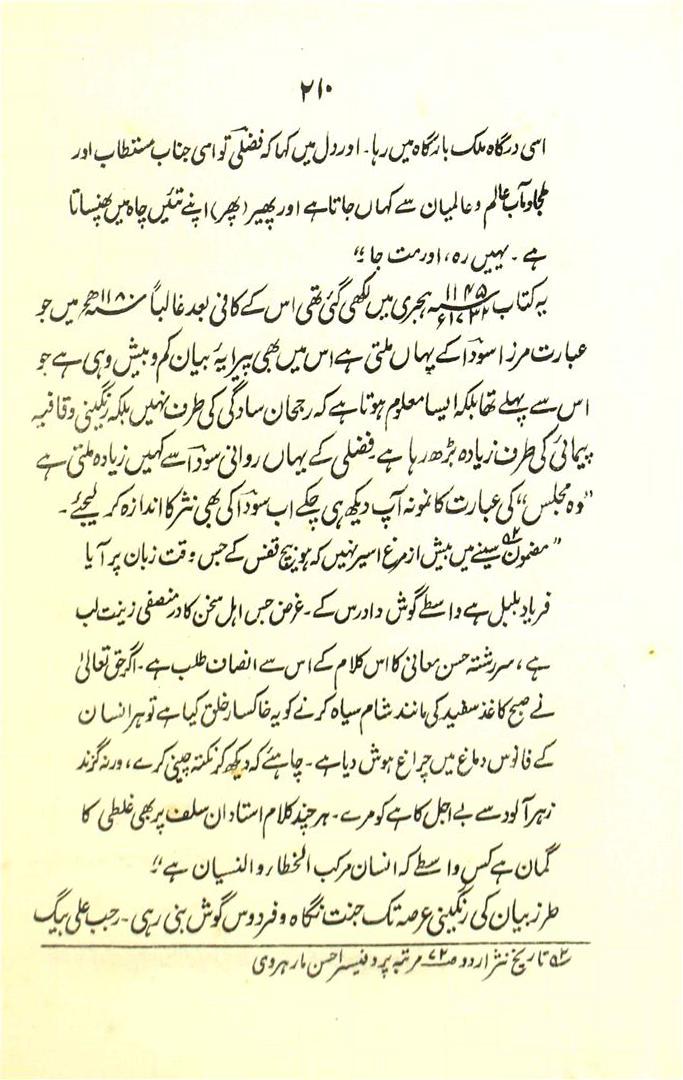 ۲۱۰
اسی درگاہ ملک بارگاہ میں رہا۔ اور دل میں کہا کہ فضلی تو اسی جناب مستطاب اور
ملجا و مآب عالم و عالمیان سے کہاں جاتا ہے اور پھیر (پھر) اپنے تئیں چاہ میں پھنساتا
ہے۔ یہیں رہ، اور مت جا ؛“
یہ کتاب ۱۱۴۵ ہجری ۱۷۳۲ء میں لکھی گئی تھی اس کے کافی بعد غالباً ۱۱۸۰ھ میں جو
عبارت مرزا سودا کے یہاں ملتی ہے اس میں بھی پیرایۂ بیان کم و بیش وہی ہے جو
اس سے پہلے تھا بلکہ ایسا معلوم ہوتا ہے کہ رجحان سادگی کی طرف نہیں بلکہ رنگینی و قافیہ
پیمائی کی طرف زیادہ بڑھ رہا ہے۔ فضلی کے یہاں روانی سودا سے کہیں زیادہ ملتی ہے
”دہ مجلس“ کی عبارت کا نمونہ آپ دیکھ ہی چکے اب سودا کی بھی نثر کا اندازہ کر لیجئے۔
”مضمون۵۲ سینے میں بیش از مرغ اسیر نہیں کہ ہو بیچ قفس کے جس وقت زبان پر آیا
فریاد بلبل ہے واسطے گوش دادرس کے۔ غرض جس اہل سخن کا در منصفی زینت لب
ہے، سررشتہ حسن معانی کا اس کلام کے اس سے انصاف طلب ہے۔ اگر حق تعالیٰ
نے صبح کاغذ سفید کی مانند شام سیاہ کرنے کو یہ خاکسار خلق کیا ہے تو ہر انسان
کے فانوس دماغ میں چراغ ہوش دیا ہے۔ چاہئے کہ دیکھ کر نکتہ چینی کرے، ورنہ گزند
زہر آلود سے بے اجل کاہے کو مرے۔ ہر چند کلام استادان سلف پر بھی غلطی کا
گمان ہے کس واسطے کہ انسان مرکب الخطار و النسیان ہے ؛“
طرز بیان کی رنگینی عرصہ تک جنت نگاہ و فردوس گوش بنی رہی۔ رجب علی بیگ
۵۲ تاریخ نثر اردو صـ ۷۲ مرتبہ پروفیسر احسن مارہروی